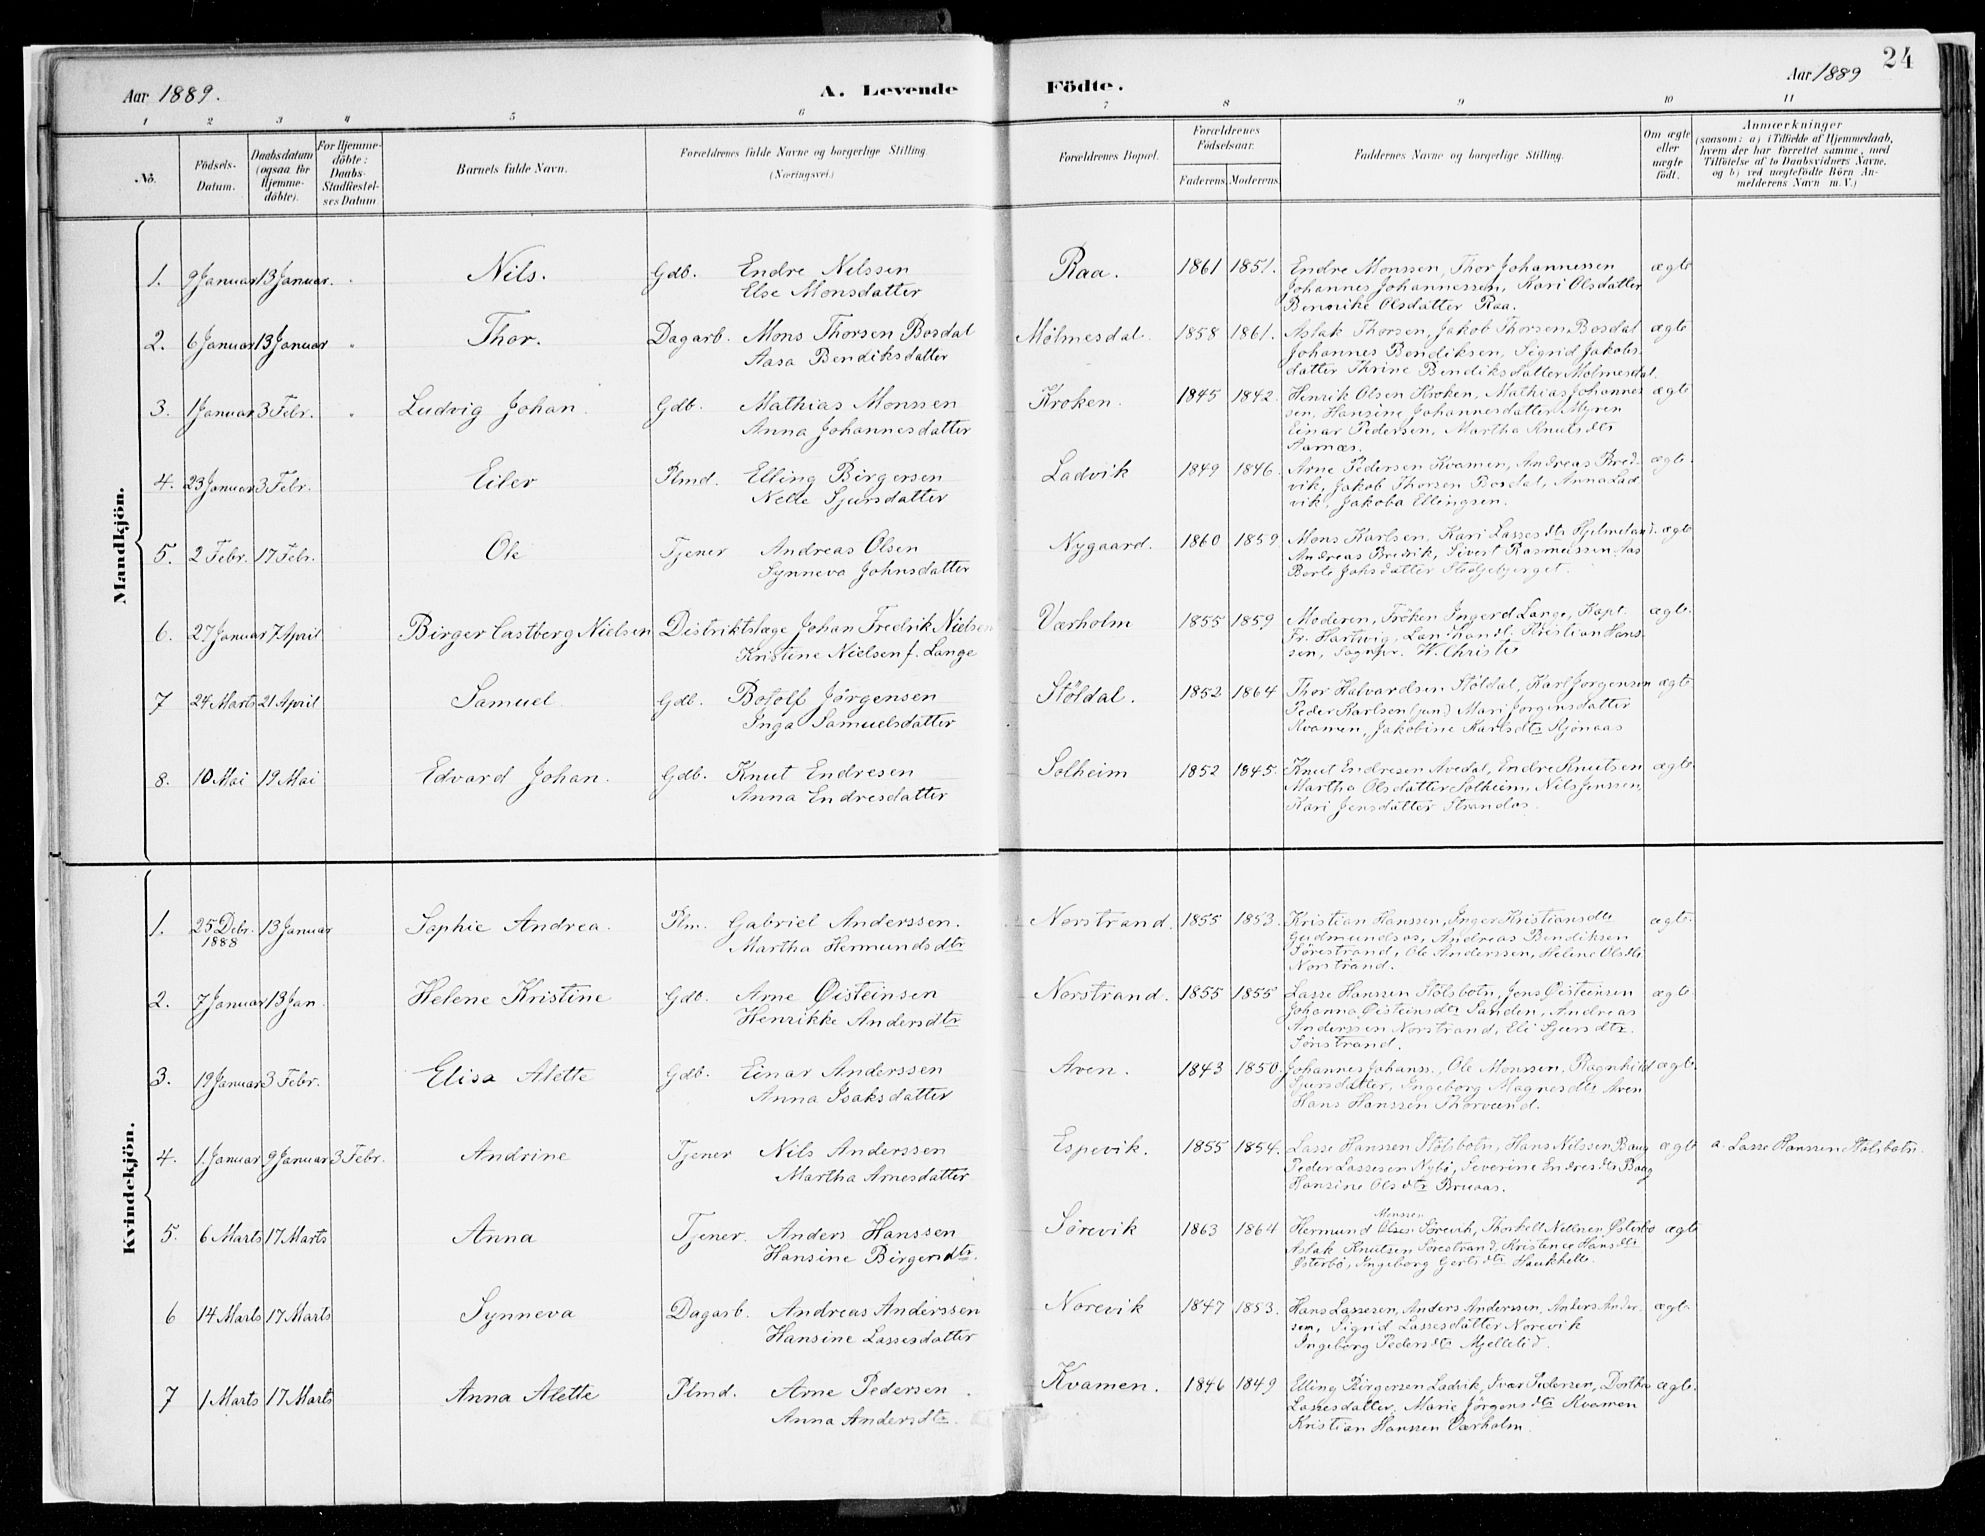 24
Aar 1889. A. Levende Födte. Aar 1889
1 2 3 4 5 6 7 8 9 10 11
No. Födsels-Datum. Daabsdatum (ogsaa for Hjemme-döbte). For Hjemme-döbte: Daabs-Stadfæstel-ses Datum Barnets fulde Navn. Forældrenes fulde Navne og borgerlige Stilling. (Næringsvei.) Forældrenes Bopæl. Forældrenes Födselsaar. Faderens Moderens Faddernes Navne og borgerlige Stilling. Om ægte eller uægte födt. Anmærkninger (saasom: a) i Tilfælde af Hjemmedaab, hvem der har forrettet samme, med Tilföielse af to Daabsvidners Navne, og b) ved uægtefödte Börn An-melderens Navn m. V.)
Mandkjön.
1. 9 Januar 13 Januar. Nils. Gdb. Endre Nilssen Raa. 1861 1851. Endre Monssen, Thor Johannessen ægte
Else Monsdatter Johannes Johannessen, Kari Olsdatter
Bennike Olsdatter Raa.
2. 6 Januar 13 Januar Thor. Dagarb. Mons Thorsen Bosdal Mølmesdal. 1858 1861. Aslak Thorsen, Jakob Thorsen Bosdal ægte
Aasa Bendiksdatter Johannes Bendiksen, Sigrid Jakobs-
datter Thrine Bendiksdatter Mølmesdal.
3. 1 Januar 3 Febr. Ludvig Johan. Gdb. Mathias Monssen Kroken. 1845 1842. Henrik Olsen Kroken, Mathias Johannes- ægte
Anna Johannesdatter sen, Hansine Johannesdatter Myren
Einar Pedersen, Martha Knutsdtr
Aarnæs.
4. 23 Januar 3 Febr. Eiler Plmd. Elling Birgersen Ladvik 1849 1846. Arne Pedersen Kvamen, Andreas Bred- ægte
Nette Sjursdatter vik, Jakob Thorsen Bosdal, Anna Lad
vik, Jakoba Ellingsen.
5. 2 Febr. 17 Febr. Ole Tjener Andreas Olsen Nygaard. 1860 1859 Mons Karlsen, Kari Lassesdtr Hjelmeland. ægte
Synneva Johnsdatter Andreas Bredvik, Sivert Rasmussen
Berte Johsdatter
6. 27 Januar 7 April Birger Castberg Nielsen Distriktslæge Johan Fredrik Nielsen Værholm 1855 1859 Moderen, Frøken Ingerd Lange, Kapt. ægte
Kristine Nielsen f. Lange Fr. Hartvig, Lan-handl. Kristian Hans-
sen, Sognpr. W. Christie
7 24 Marts 21 April Samuel Gdb. Botolf Jørgensen Støldal. 1852 1864 Thor Halvardsen Støldal, Karl Jørgensen ægte
Inga Samuelsdatter Peder Karlsen (jun) Mari Jørgensdatter
Kvamen, Jakobine Karlsdtr Kjønaas
8. 10 Mai 19 Mai Edvard Johan. Gdb. Knut Endresen Solheim 1852 1845. Knut Endresen Avedal, Endre Knutsen ægte
Anna Endresdatter Martha Olsdatter Solheim, Nils Jenssen,
Kari Jensdatter Strandos.
Kvindekjön.
1. 25 Debr. 1888 13 Januar Sophie Andrea. Plm. Gabriel Anderssen. Norstrand. 1855 1853. Kristian Hanssen, Inger Kristiansdtr ægte
Martha Hermundsdtr Gudmundsos, Andreas Bendiksen
Sørestrand, Ole Anderssen, Helene Olsdtr
Norstrand.
2. 7 Januar 13 Jan. Helene Kristine Gdb. Arne Øisteinsen Norstrand. 1855 1855 Lasse Hanssen Stølsbotn, Jens Øisteinsen ægte
Henrikke Andersdtr Johanna Øisteinsdtr Sanden, Andreas
Anderssen Norstrand, Eli Sjursdtr.
Sørstrand.
3. 19 Januar 3 Febr. Elisa Alette Gdb. Einar Anderssen Aven. 1843 1850. Johannes Johanss., Ole Monssen, Ragnhild ægte
Anna Isaksdatter Sjursdatter, Ingeborg Magnesdtr Aven
Hans Hanssen Thorvand.
4. 1. Januar 9 Januar 3 Febr. Andrine Tjener Nils Anderssen Espevik. 1855 1854. Lasse Hanssen Stølsbotn, Hans Nilssen Baug ægte a. Lasse Hanssen Stølsbotn.
Martha Arnesdatter Peder Lassesen Nybø, Severine Endresdtr Baug
Hansine Olsdtr Bruaas.
5. 6 Marts 17 Marts Anna Tjener. Anders Hanssen Sørevik 1863 1864 Hermund Olsen Monssen Sørevik, Thorkell Nettnen Østerbø ægte
Hansine Birgersdtr. Aslak Knutsen Sørestrand, Kristence Hansdtr
Østerbø, Ingeborg Gertsdtr Haukhelle.
6 14 Marts 17 Marts Synneva Dagarb. Andreas Anderssen Norevik 1847 1853. Hans Lassesen, Anders Anderssen, Anders Ander- ægte
Hansine Lassesdatter sen, Sigrid Lassesdatter Norevik
Ingeborg Pedersdtr Mjellelid.
7 1 Marts 17 Marts Anna Alette Plmd. Arne Pedersen Kvamen. 1846 1849 Elling Birgersen Ladvik, Ivar Pedersen, Dorthea ægte
Anna Andersdtr. Lassesdatter, Marie Jørgensdtr Kvamen
Kristian Hanssen Værholm.